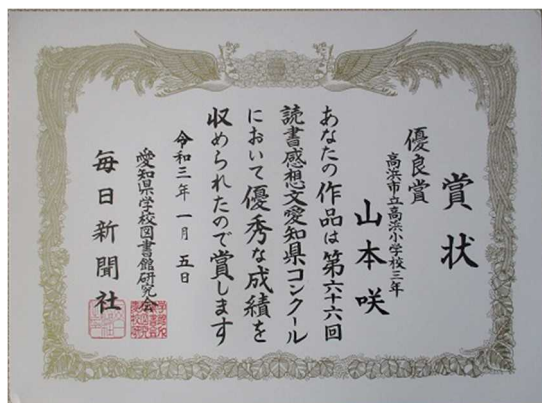 賞状
優良賞
高浜市立高浜小学校三年
山本咲
あなたの作品は第六十六回
読書感想文愛知県コンクール
において優秀な成績を
収められたので賞します
令和三年一月五日
愛知県学校図書館研究会
毎日新聞社